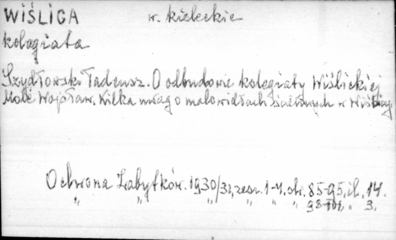 WIŚLICA w. kieleckie
kolegiata
Szydłowski Tadeusz. O odbudowie kolegiaty Wiślickiej
Molè Wojsław. Kilka uwag o malowidłach ściennych w Wiślicy
Ochrona Zabytków. 1930/31, zesz. 1-4, str. 85-95, il. 14.
" " " " 98-101, " 3.